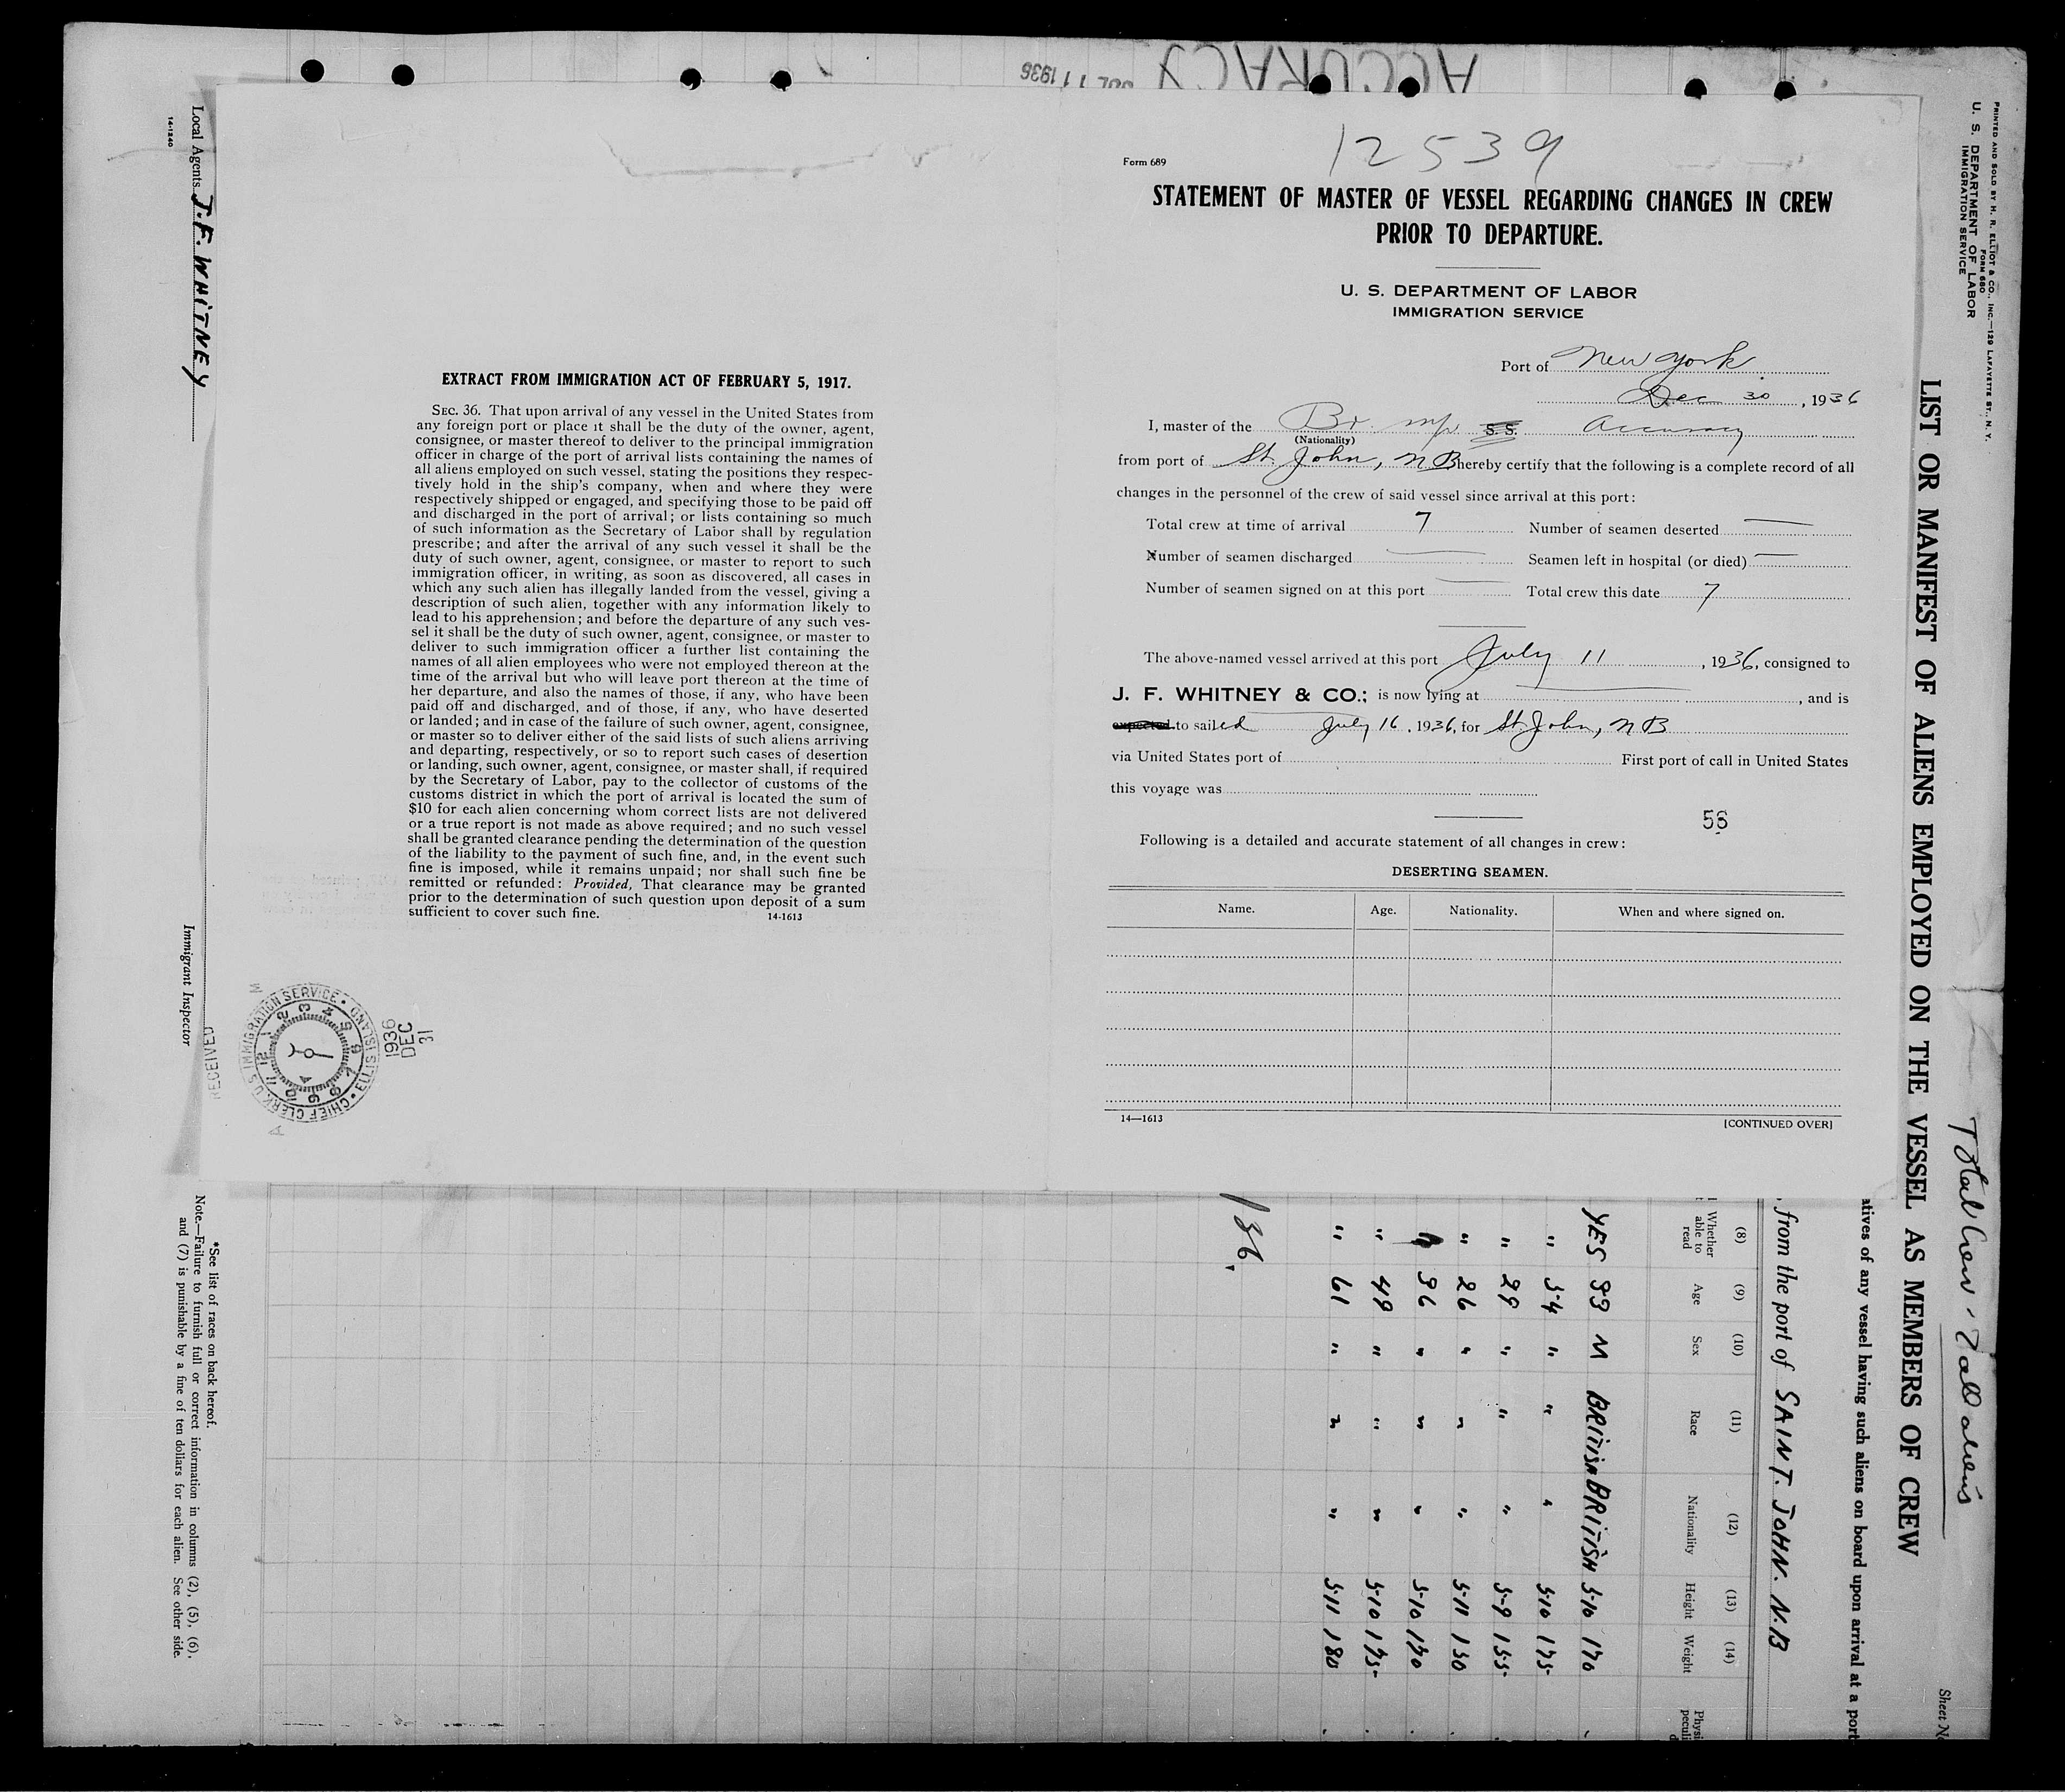 ACCURACY
JUL 11 1936
12539
Form 689
STATEMENT OF MASTER OF VESSEL REGARDING CHANGES IN CREW
PRIOR TO DEPARTURE.
U. S. DEPARTMENT OF LABOR
IMMIGRATION SERVICE
Port of New York
Dec 30, 1936
I, master of the Br. S. S. Accuracy
(Nationality)
from port of St. John, N B hereby certify that the following is a complete record of all
changes in the personnel of the crew of said vessel since arrival at this port:
Total crew at time of arrival 7 Number of seamen deserted —
Number of seamen discharged — Seamen left in hospital (or died) —
Number of seamen signed on at this port — Total crew this date 7
The above-named vessel arrived at this port July 11, 1936, consigned to
J. F. WHITNEY & CO.; is now lying at —, and is
expected to sailed July 16, 1936, for St. John, N B
via United States port of First port of call in United States
this voyage was
58
Following is a detailed and accurate statement of all changes in crew:
DESERTING SEAMEN.
Name. Age. Nationality. When and where signed on.
14—1613 [CONTINUED OVER]
EXTRACT FROM IMMIGRATION ACT OF FEBRUARY 5, 1917.
SEC. 36. That upon arrival of any vessel in the United States from
any foreign port or place it shall be the duty of the owner, agent,
consignee, or master thereof to deliver to the principal immigration
officer in charge of the port of arrival lists containing the names of
all aliens employed on such vessel, stating the positions they respec-
tively hold in the ship's company, when and where they were
respectively shipped or engaged, and specifying those to be paid off
and discharged in the port of arrival; or lists containing so much
of such information as the Secretary of Labor shall by regulation
prescribe; and after the arrival of any such vessel it shall be the
duty of such owner, agent, consignee, or master to report to such
immigration officer, in writing, as soon as discovered, all cases in
which any such alien has illegally landed from the vessel, giving a
description of such alien, together with any information likely to
lead to his apprehension; and before the departure of any such ves-
sel it shall be the duty of such owner, agent, consignee, or master to
deliver to such immigration officer a further list containing the
names of all alien employees who were not employed thereon at the
time of the arrival but who will leave port thereon at the time of
her departure, and also the names of those, if any, who have been
paid off and discharged, and of those, if any, who have deserted
or landed; and in case of the failure of such owner, agent, consignee,
or master so to deliver either of the said lists of such aliens arriving
and departing, respectively, or so to report such cases of desertion
or landing, such owner, agent, consignee, or master shall, if required
by the Secretary of Labor, pay to the collector of customs of the
customs district in which the port of arrival is located the sum of
$10 for each alien concerning whom correct lists are not delivered
or a true report is not made as above required; and no such vessel
shall be granted clearance pending the determination of the question
of the liability to the payment of such fine, and, in the event such
fine is imposed, while it remains unpaid; nor shall such fine be
remitted or refunded: Provided, That clearance may be granted
prior to the determination of such question upon deposit of a sum
sufficient to cover such fine. 14-1613
RECEIVED
CHIEF CLERK, U.S. IMMIGRATION SERVICE • ELLIS ISLAND •
1 2 3 4 5 6 7 8 9 10 11 12
1936
DEC
31
PRINTED AND SOLD BY H. R. ELLIOT & CO., INC.—129 LAFAYETTE ST., N. Y.
FORM 680
U. S. DEPARTMENT OF LABOR
IMMIGRATION SERVICE
Total Crew 7 all aliens
Sheet No
LIST OR MANIFEST OF ALIENS EMPLOYED ON THE VESSEL AS MEMBERS OF CREW
atives of any vessel having such aliens on board upon arrival at a port
, from the port of SAINT. JOHN. N.B
(8) (9) (10) (11) (12) (13) (14)
Whether able to read Age Sex Race Nationality Height Weight Physi peculi
YES 33 M BRITISH BRITISH 5-10 170
" 54 " " " 5-10 175
" 29 " " " 5-9 155
" 26 " " " 5-11 150
" 36 " " " 5-10 170
" 49 " " " 5-10 175
" 61 " " " 5-11 180
/36.
*See list of races on back hereof.
Note.—Failure to furnish full or correct information in columns (2), (5), (6),
and (7) is punishable by a fine of ten dollars for each alien. See other side.
Local Agents J. F. WHITNEY
Immigrant Inspector
14-1240